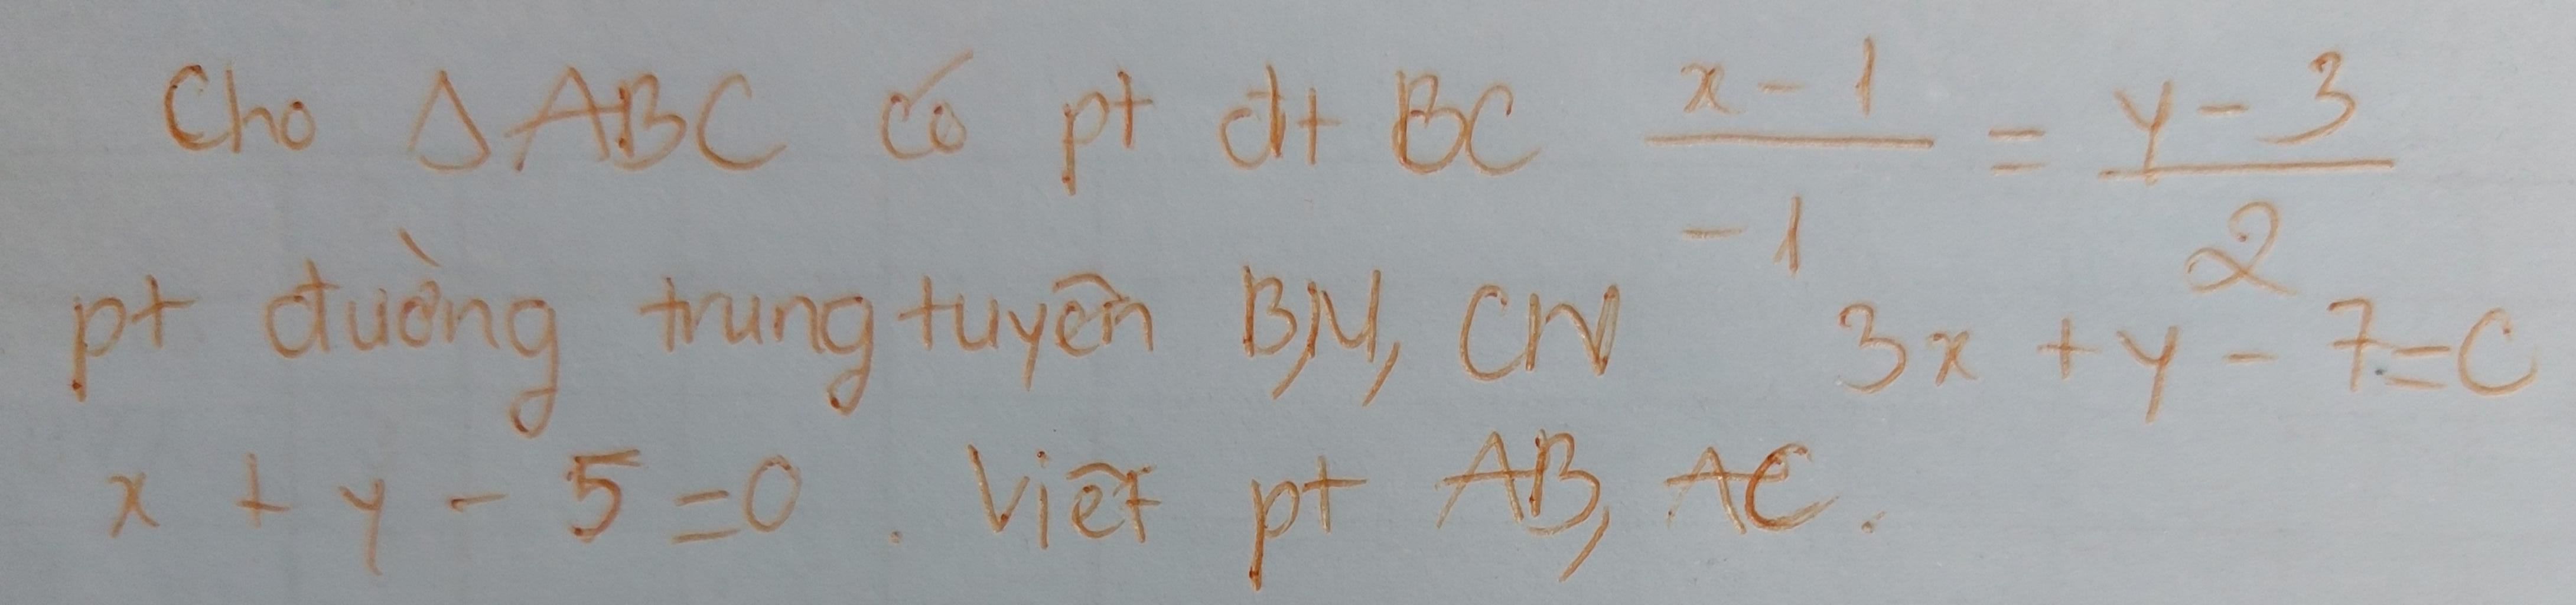 Cho ΔABC có pt đt BC \frac{x-1}{-1} = \frac{y-3}{2}
pt đường trung tuyến BM, CN 3x + y - 7=0
x + y - 5=0. Viết pt AB, AC.